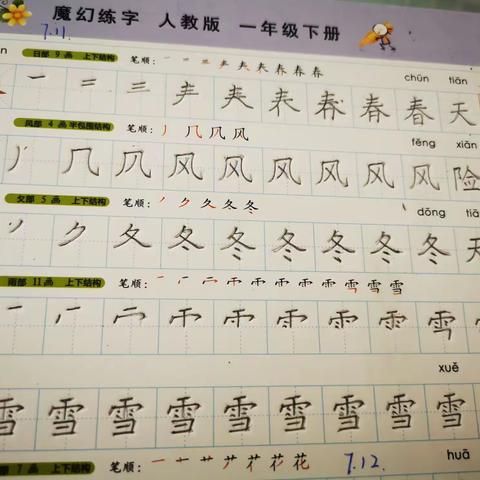 魔幻练字 人教版 一年级下册
7.11.
日部 9画 上下结构 笔顺: 一 二 三 声 夫 表 春 春 春
chūn tiān
一 二 三 夫 春 春 春 天
风部 4画 半包围结构 笔顺: 丿 几 凤 风
fēng xiǎn
丿 几 风 风 风 风 风 风 险
夂部 5画 上下结构 笔顺: 丿 ク 夂 冬 冬
dōng tiā
ク 夂 冬 冬 冬 冬 冬 冬 天
雨部 11画 上下结构 笔顺: 一 雨 雨 雨 雪 雪 雪
雨 雨 雪
xuě
雪 雪 雪 雪 雪 雪 雪 雪 雪
部 7画 上下结构 笔顺: 一 十 艹 花 花 花
7.12.
huā